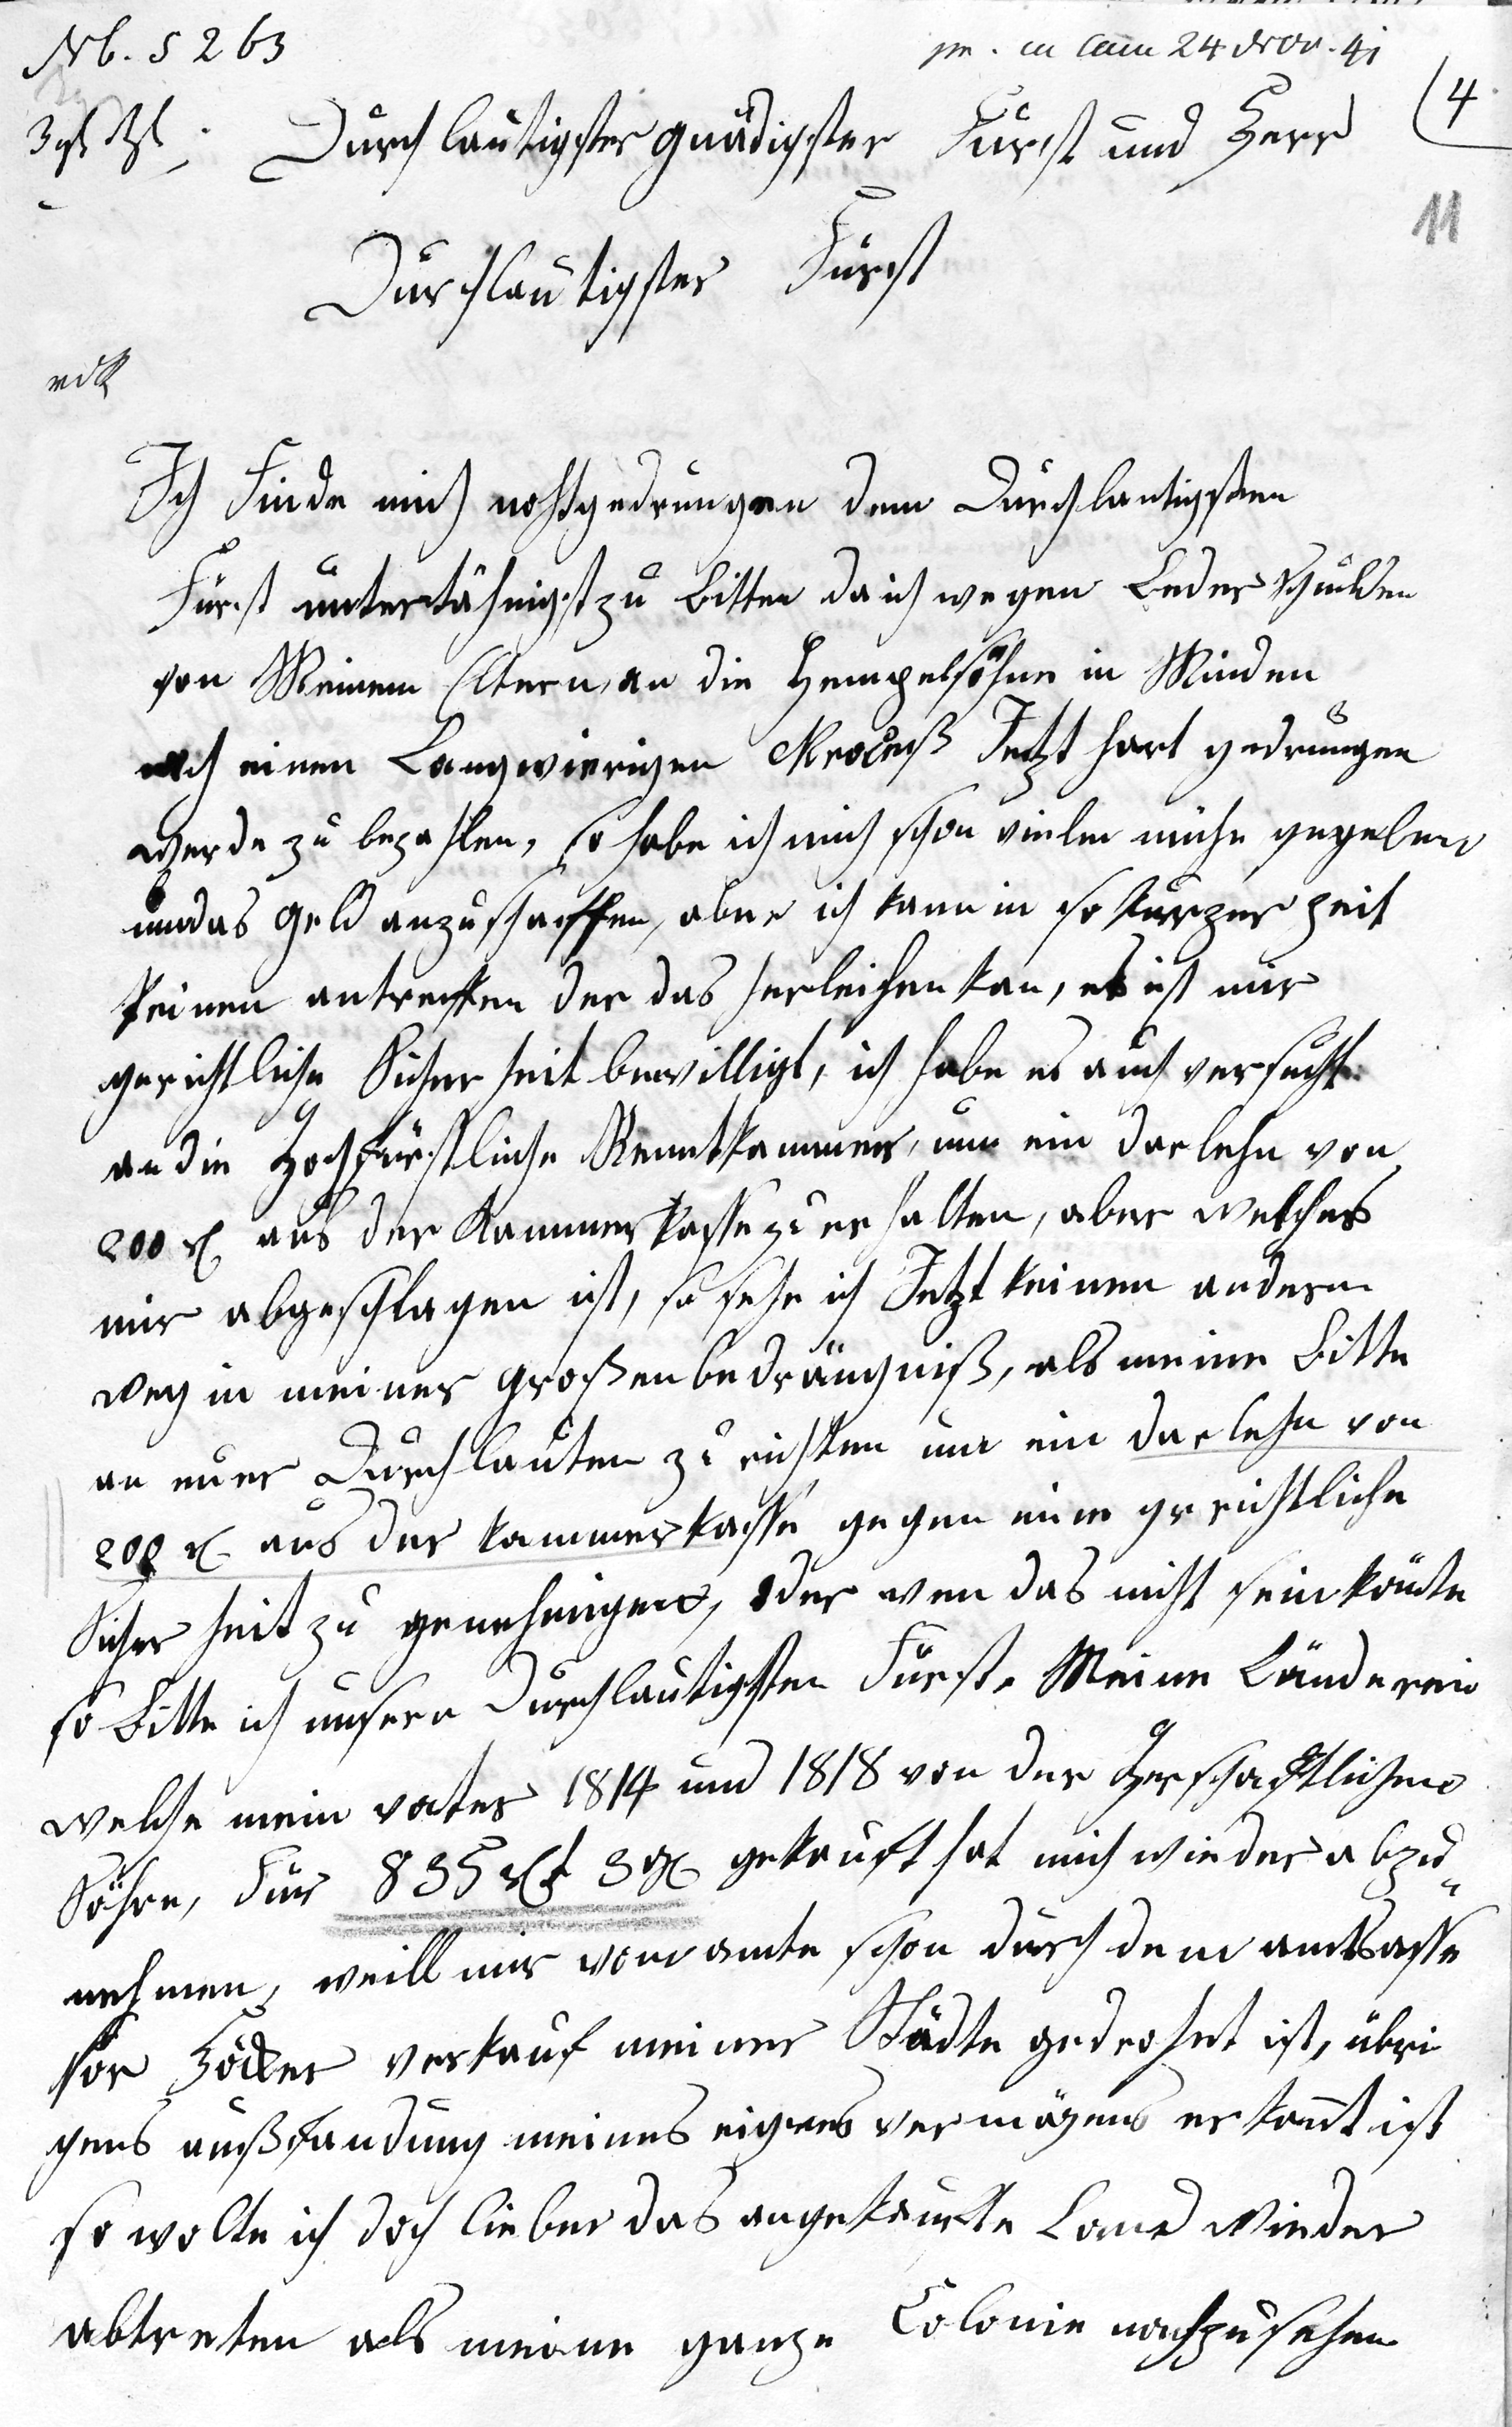 Nb. 5263
pr. in Cam 24 Nov. 41
4
Durchlautigster gnädigster Fürst und Herr
11
Durchlautigster Fürst
Ich Finde mich nohtgedrungen dem Durchlautigsten
Fürst untertähnigst zu bitten da ich wegen Leder schulden
von Meinem Eltern, an die Hempelsöhne in Minden
nach einen Langwierigen Proceß Jetzt hart gedrungen
werde zu bezahlen, so habe ich mich schon vieler mühe gegeben
um das Geld anzuschaffen, aber ich kann in so kurzer zeit
keinen antreffen der das herleihen kan, es ist mir
gerichtliche Sicherheit bewilligt, ich habe es auch versucht
an die Hochfürstliche Renntkammer, um ein darlehn von
200 r aus der Kammerkasse zu erhalten, aber welches
mir abgeschlagen ist, so sehe ich Jetzt keinen andern
weg in meiner großen bedrängniß, als meine bitte
an euer Durchlauten zu richten um ein darlehn von
200 r aus der kammerkasse gegen eine gerichtliche
Sicherheit zu genehmigen, oder wen das nicht sein könte
so bitte ich unsern Durchlautigsten Fürst. Meine Länderein
welche mein vater 1814 und 1818 von der Herschaftlichen
Föhre, Für 835 rt 3 gr gekauft hat mich wieder abzu„
nehmen, weill mir vom amte schon durch dem amtsasse
sor Höcker verkauf meiner Städte gedrohet ist, übri
gens außfandung meines eignes vermögens erkannt ist
so wolte ich doch lieber das angekaufte Land wieder
abtreten als meine ganze Colonie nachzusehen